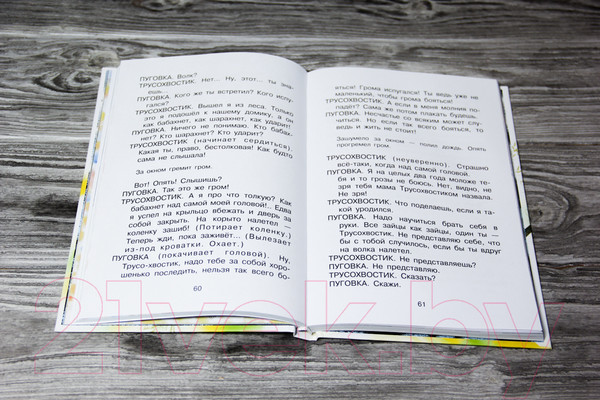 ПУГОВКА. Волк?
ТРУСОХВОСТИК. Нет... Ну, этот... ты зна-
ешь...
ПУГОВКА. Кого же ты встретил? Кого испу-
гался?
ТРУСОХВОСТИК. Вышел я из леса. Только
это я подошёл к нашему домику, а он
как бабахнет, как шарахнет, как ударит!
ПУГОВКА. Ничего не понимаю. Кто бабах-
нет? Кто шарахнет? Кто ударит?
ТРУСОХВОСТИК (начинает сердиться).
Какая ты, право, бестолковая! Как будто
сама не слышала!
За окном гремит гром.
Вот! Опять! Слышишь?
ПУГОВКА. Так это же гром!
ТРУСОХВОСТИК. А я про что толкую? Как
бабахнет над самой моей головой!.. Едва
я успел на крыльцо вбежать и дверь за
собой закрыть. На корыто налетел —
коленку зашиб! (Потирает коленку.)
Теперь жди, пока заживёт... (Вылезает
из-под кроватки. Охает.)
ПУГОВКА (покачивает головой). Ну,
Трусо-хвостик, надо тебе за собой хоро-
шенько последить, нельзя так всего бо-
60
яться! Грома испугался! Ты ведь уже не
маленький, чтобы грома бояться!
ТРУСОХВОСТИК. А если в меня молния по-
падёт? Сама же потом плакать будешь.
ПУГОВКА. Несчастье со всяким может слу-
читься. Но если так всего бояться, то
ведь и жить не стоит!
Зашумело за окном — полил дождь. Опять
прогремел гром.
ТРУСОХВОСТИК (неуверенно). Страшно
всё-таки, когда над самой головой.
ПУГОВКА. Я на целых два года моложе те-
бя и то грозы не боюсь. Нет, видно, не
зря тебя мама Трусохвостиком назвала.
Не зря!
ТРУСОХВОСТИК. Что поделаешь, если я та-
кой уродился.
ПУГОВКА. Надо научиться брать себя в
руки. Все зайцы как зайцы, один ты —
Трусохвостик. Не представляю себе, что
бы с тобой случилось, если бы ты вдруг
на волка налетел.
ТРУСОХВОСТИК. Не представляешь?
ПУГОВКА. Не представляю.
ТРУСОХВОСТИК. Сказать?
ПУГОВКА. Скажи.
61
21vek.by